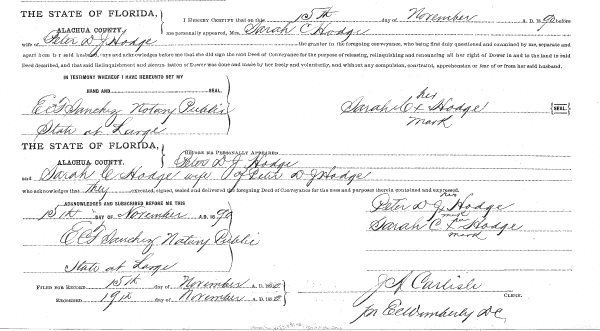 THE STATE OF FLORIDA,
ALACHUA COUNTY.
I HEREBY CERTIFY that on this 15th day of November A. D. 1890 before
me personally appeared, Mrs. Sarah C Hodge
wife of Peter D J Hodge the grantor in the foregoing conveyance, who being first duly questioned and examined by me, separate and
apart from her said husband, and acknowledges before me that she did sign the said Deed of Conveyance for the purpose of releasing, relinquishing and renouncing all her right of Dower in and to the land in said
Deed described, and that said Relinquishment and Renunciation of Dower was done and made by her freely and voluntarily, and without any compulsion, constraint, apprehension or fear of or from her said husband.
IN TESTIMONY WHEREOF I HAVE HEREUNTO SET MY
HAND AND SEAL.
E C F Sanchez Notary Public
State at Large
his
Sarah C x Hodge SEAL.
mark
THE STATE OF FLORIDA,
ALACHUA COUNTY.
BEFORE ME PERSONALLY APPEARED
Peter D J Hodge
and Sarah C Hodge wife of Peter D J Hodge
who acknowledges that they executed, signed, sealed and delivered the foregoing Deed of Conveyance for the uses and purposes therein contained and expressed.
ACKNOWLEDGED AND SUBSCRIBED BEFORE ME THIS
15th DAY OF November A. D. 1890
E C F Sanchez Notary Public
State at Large
his
Peter D J x Hodge
mark
her
Sarah C x Hodge
mark
FILED FOR RECORD 15th day of November A. D. 1890
RECORDED 19th day of November A. D. 1890
J A Carlisle
CLERK.
pr E C Wimberly D C